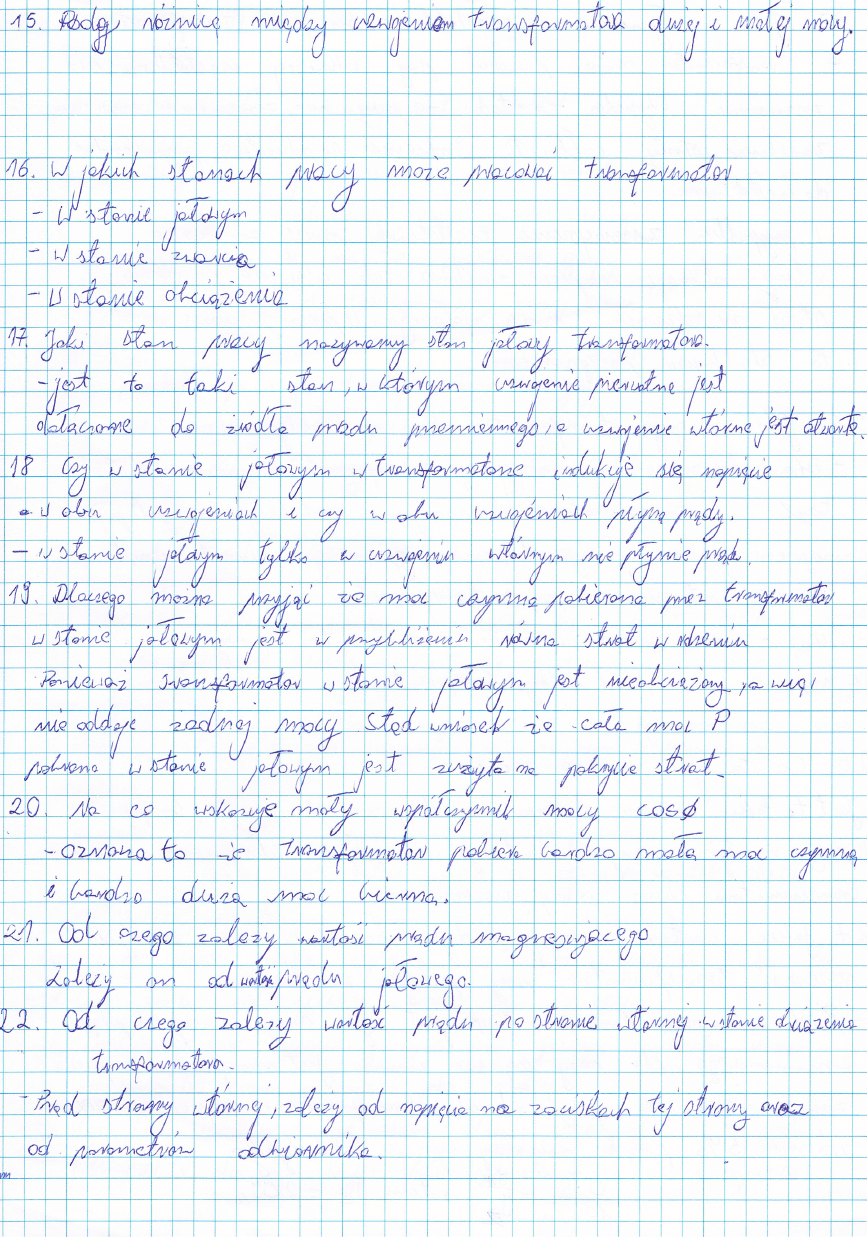 15. Podaj różnicę między uzwojeniem transformatora dużej i małej mocy.
16. W jakich stanach pracy może pracować transformator
- W stanie jałowym
- W stanie zwarcia
- W stanie obciążenia
17. Jaki stan pracy nazywamy stan jałowy transformatora.
- jest to taki stan, w którym uzwojenie pierwotne jest
dołączone do źródła prądu przemiennego, a uzwojenie wtórne jest otwarte.
18 Czy w stanie jałowym w transformatorze indukuje się napięcie
w obu uzwojeniach i czy w obu uzwojeniach płyną prądy.
- w stanie jałowym tylko w uzwojeniu wtórnym nie płynie prąd.
19. Dlaczego można przyjąć że moc czynna pobierana przez transformator
w stanie jałowym jest w przybliżeniu równa strat w rdzeniu
Ponieważ transformator w stanie jałowym jest nieobciążony, a więc
nie oddaje żadnej mocy Stąd wniosek że cała moc P
pobrana w stanie jałowym jest zużyta na pokrycie strat.
20. Na co wskazuje mały współczynnik mocy cosϕ
- Oznacza to że transformator pobiera bardzo małą moc czynną
i bardzo dużą moc bierną.
21. Od czego zależy wartość prądu magnesującego
Zależy on od wartości prądu jałowego.
22. Od czego zależy wartość prądu po stronie wtórnej w stanie obciążenia
transformatora.
- Prąd strony wtórnej, zależy od napięcia na zaciskach tej strony oraz
od parametrów odbiornika.
m